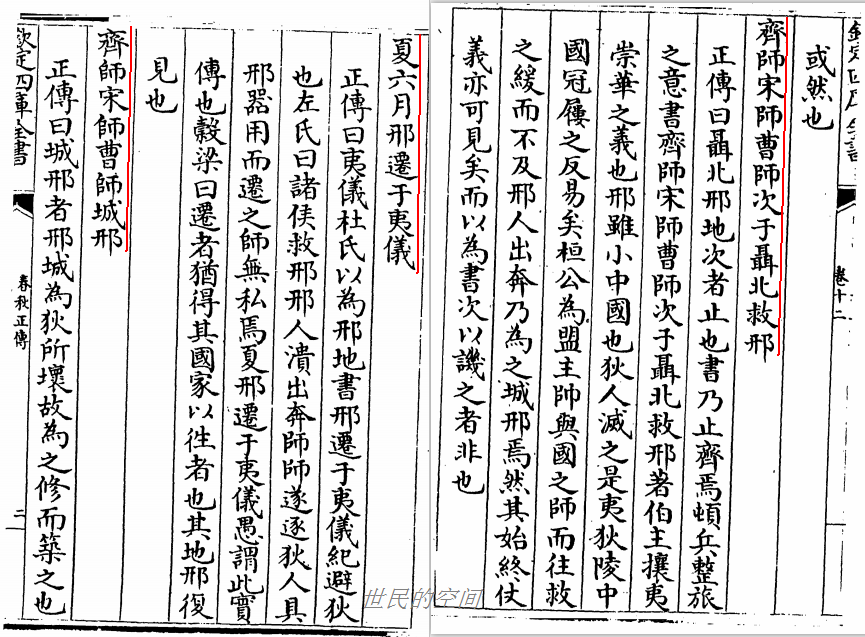 卷十二
或然也
齊師宋師曹師次于聶北救邢
正傳曰聶北邢地次者止也書乃止齊焉頓兵整旅
之意書齊師宋師曹師次于聶北救邢著伯主攘夷
崇華之義也邢雖小中國也狄人滅之是夷狄陵中
國冠屨之反易矣桓公為盟主帥與國之師而往救
之緩而不及邢人出奔乃為之城邢焉然其始終仗
義亦可見矣而以為書次以譏之者非也
夏六月邢遷于夷儀
正傳曰夷儀杜氏以為邢地書邢遷于夷儀紀避狄
也左氏曰諸侯救邢邢人潰出奔師師遂逐狄人具
邢器用而遷之師無私焉夏邢遷于夷儀愚謂此實
傳也穀梁曰遷者猶得其國家以徃者也其地邢復
見也
齊師宋師曹師城邢
正傳曰城邢者邢城為狄所壞故為之修而築之也
欽定四庫全書
春秋正傳
二
世民的空间